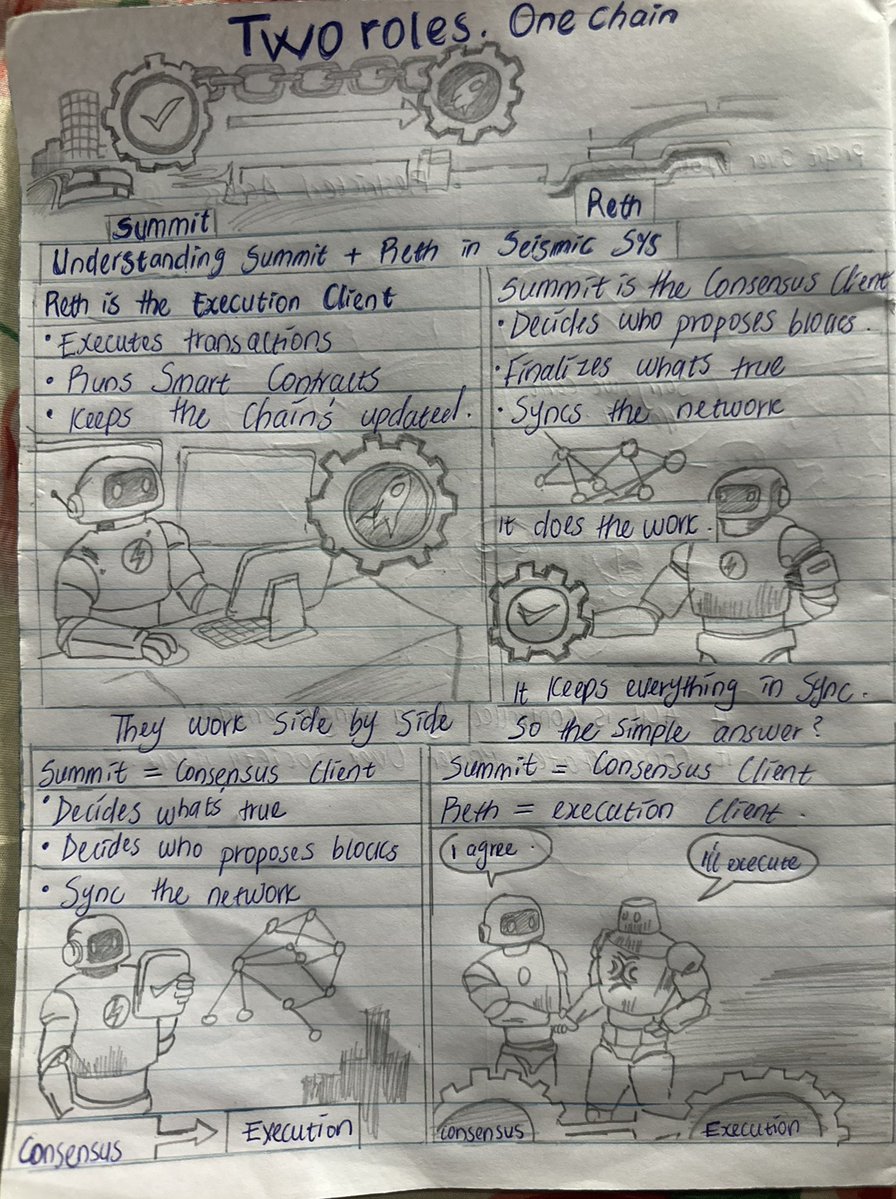 Two roles. One Chain
Summit
Reth
Understanding Summit + Reth in Seismic Sys
Reth is the Execution Client
• Executes transactions
• Runs Smart Contracts
• Keeps the Chain's updated.
Summit is the Consensus Client
• Decides who proposes blocks.
• Finalizes whats true
• Syncs the network
It does the work.
It Keeps everything in Sync.
They work Side by Side
So the Simple answer?
Summit = Consensus Client
• Decides what's true
• Decides who proposes blocks
• Sync the network
Consensus
Execution
Summit = Consensus Client
Reth = execution Client.
I agree.
I'll execute
Consensus
Execution